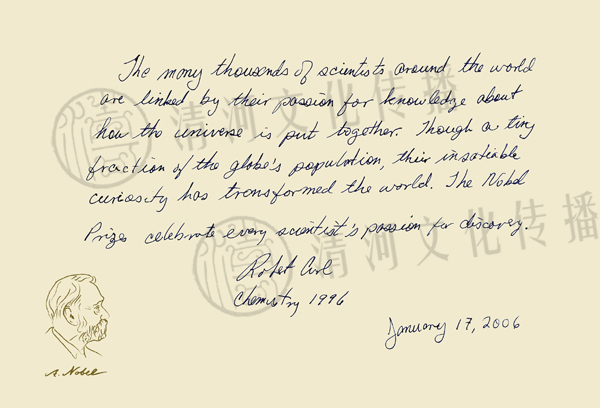 The many thousands of scientists around the world
are linked by their passion for knowledge about
how the universe is put together. Though a tiny
fraction of the globe's population, their insatiable
curiosity has transformed the world. The Nobel
Prizes celebrate every scientist's passion for discovery.
Robert Curl
Chemistry 1996
January 17, 2006
A. Nobel
清河文化传播
清河文化传播